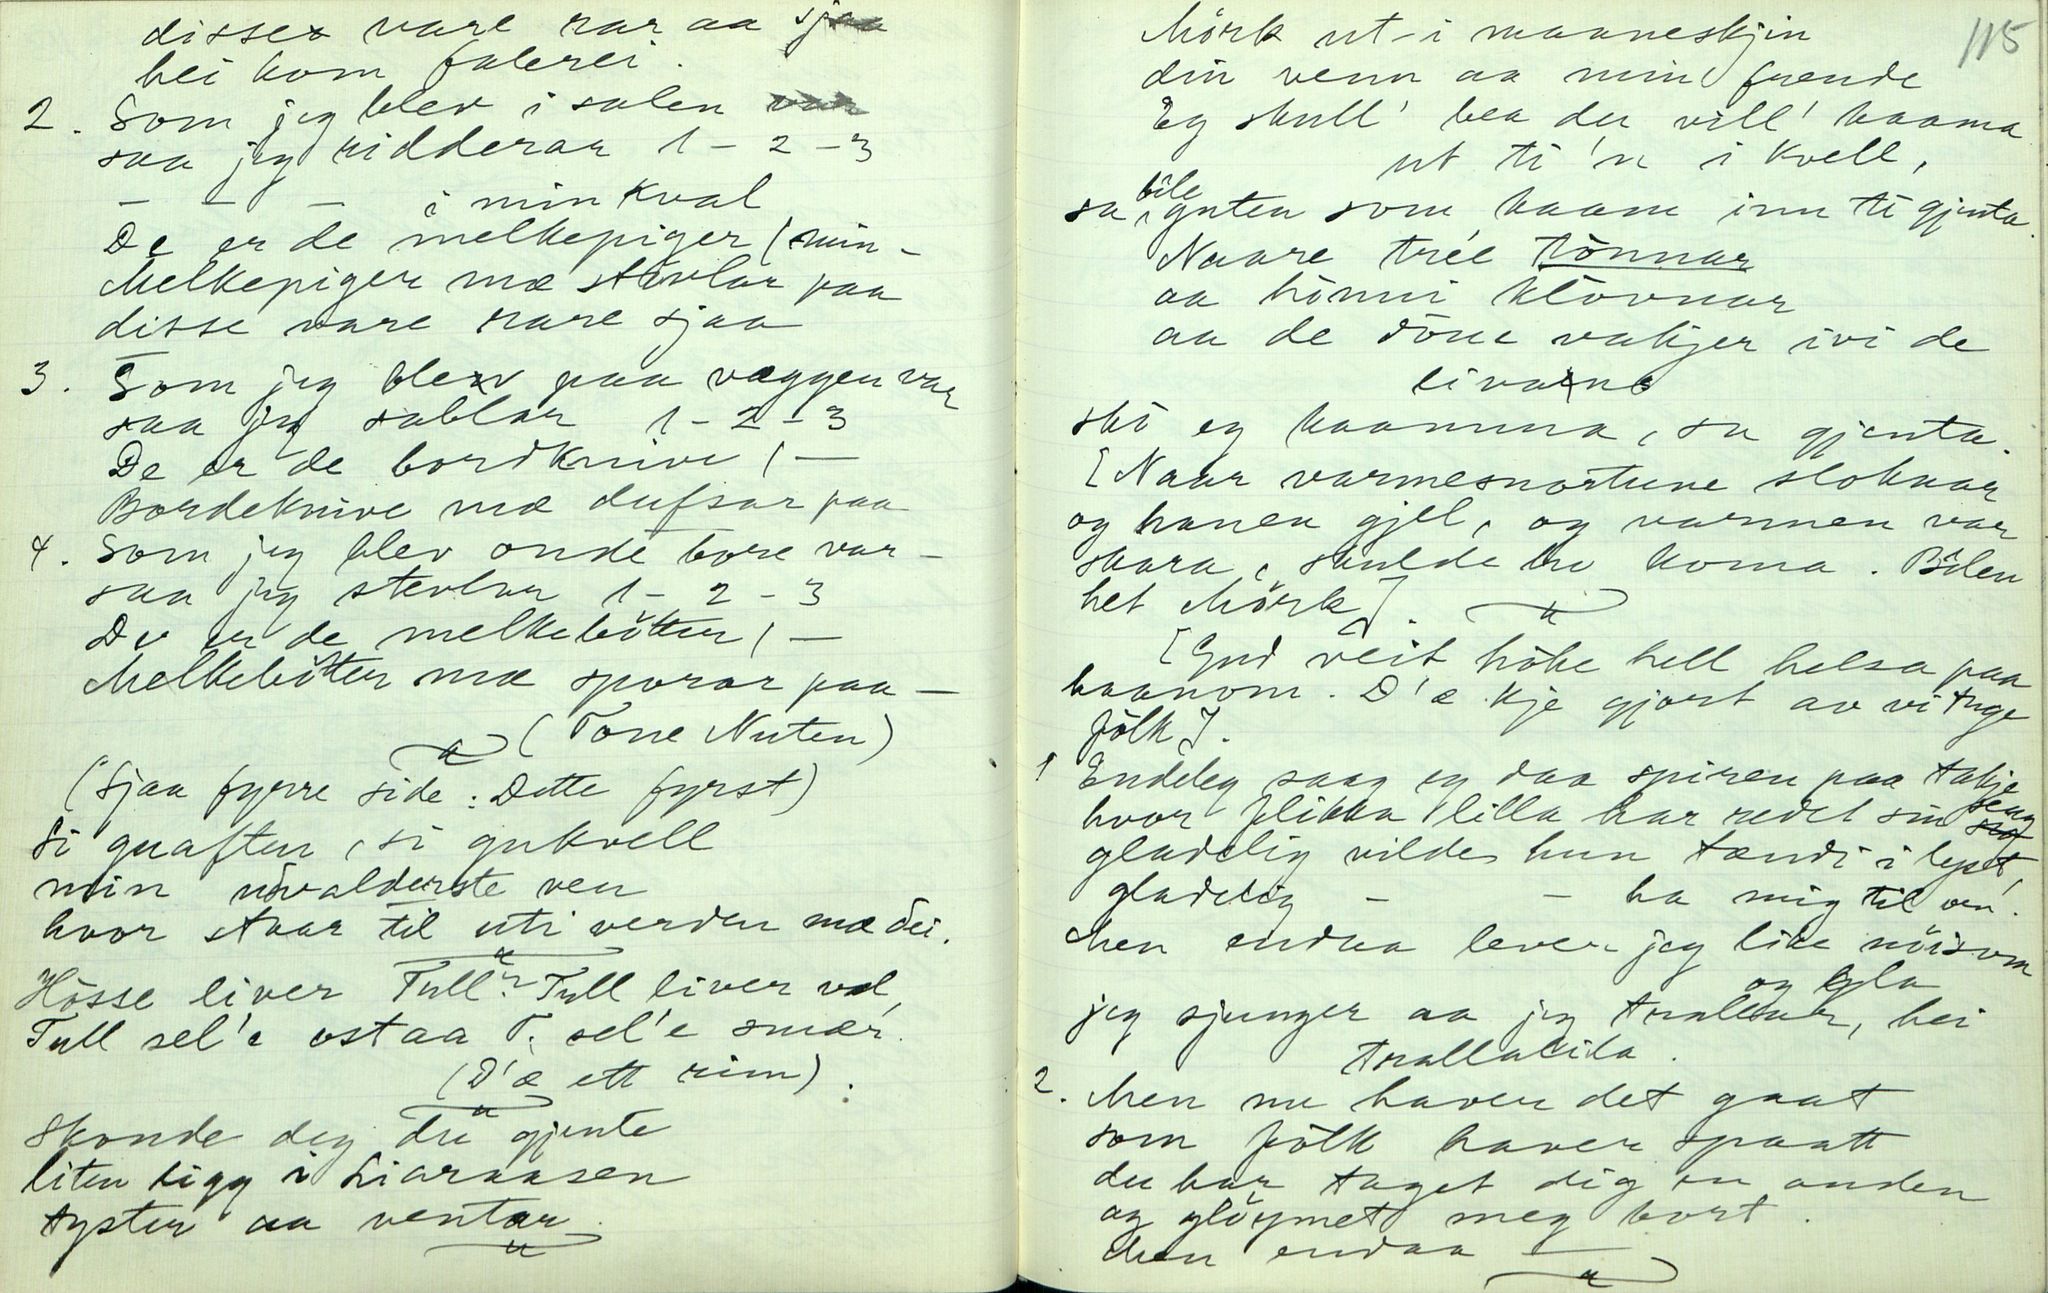 disse vare rar aa sjaa
hei kom falerei.
2. Som jeg blev i salen var
saa jeg ridderar 1 - 2 - 3
— — — i min kval
De er de melkepiger, min -
Melkepiger mæ stevlar paa
disse vare rare sjaa
3. Som jeg blev paa væggen var
saa jeg sablar 1 - 2 - 3
De er de bordknive, —
Bordeknive mæ dufsar paa
4. Som jeg blev onde bore var -
saa jeg stevlar 1 - 2 - 3
De er de melkebötter, —
Melkebötter mæ sporar paa —
(Tone Nuten)
(Sjaa fyrre side: Dette fyrst)
Si guaften, si gukvell
min uvalderste ven
hvor staar til uti verden mæ dei.
Hösse liver Tull? Tull liver vel,
Tull sel'e ost aa T. sel'e smær.
(D'æ ett rim).
Skonde deg du gjente
liten ligg i Liaraasen
tyster aa ventar.
115
Mörk ut-i maaneskjin
din venn aa min frende
Eg skull' bea du vill' kaama
ut ti 'n i kvell,
sa bile guten som kaam inn ti gjenta.
Naare tree tönnar
aa hönni klövnar
aa de döue vakjer ivi de
livane
ski eg kaamma, sa gjenta.
[Naar varmesnortene sloknar
og hanen gjel, og varmen var
skara, skulde ho koma. Bilen
het Mörk].
[Gud veit höke hell helsa paa
haanom. D'æ kje gjort av vituge
fölk].
1 Endeleg saag eg daa spiren paa takje
hvor flikka lilla har redet sin seng
gladelig vilde hun tændi i lyset,
gladelig — — ha mig til ven.
Men endaa lever jeg like nöisom
og gla
jeg sjunger aa jeg trallar, hei
trallalila.
2. Men nu haver det gaat
som fölk haver spaatt
du har taget dig en anden
og glöymet meg bort.
Men endaa —